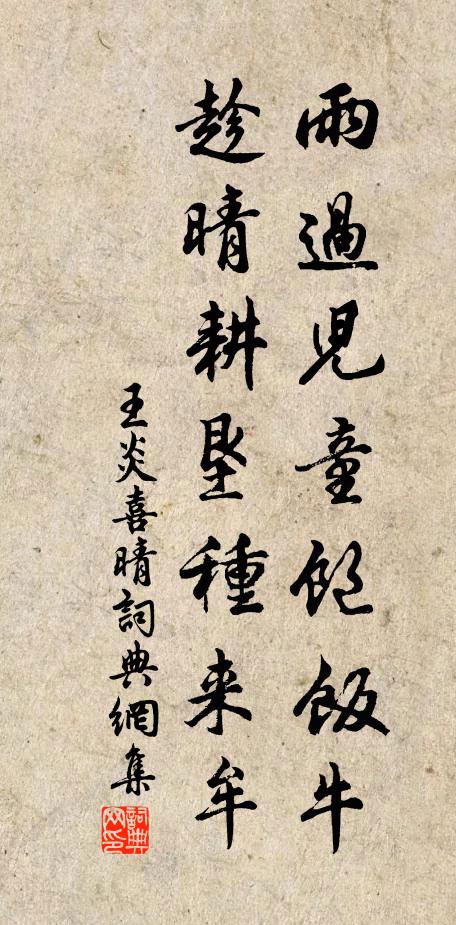 雨過児童飽飯牛
趁晴耕垦種来牟
王炎喜晴詞典網集
詞典网印